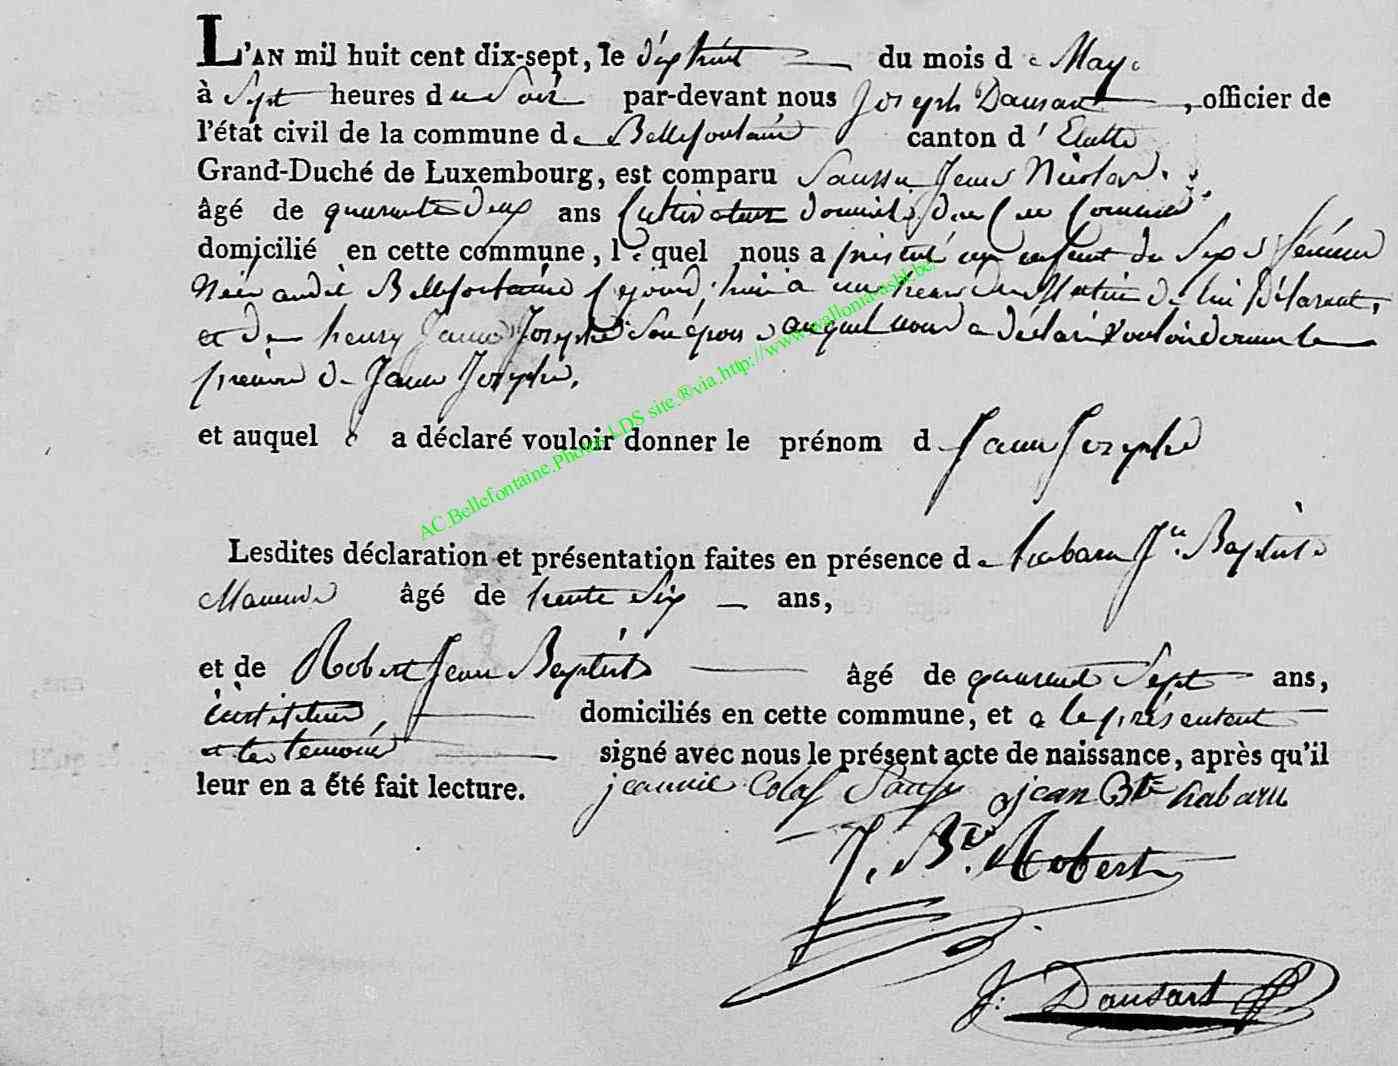 L'AN mil huit cent dix-sept, le dix huit du mois de May
à Sept heures du Soir par-devant nous Joseph Dansart, officier de
l'état civil de la commune de Bellefontaine canton d'Etalle
Grand-Duché de Luxembourg, est comparu Jean Nicolas
âgé de quarante deux ans Cultivateur
domicilié en cette commune, lequel nous a présenté un enfant du Sexe féminin
Bellefontaine a une heure du Matin de lui Déclarant,
et de henry Jeanne Josephe Son épouse auquel a déclaré vouloir donner le
prénom de Jeanne Josephe.
et auquel a déclaré vouloir donner le prénom d Jeanne Josephe
AC.Bellefontaine.Photos LDS site ®via.http://www.wallonia-asbl.be
Lesdites déclaration et présentation faites en présence de habaru Jn. Baptiste
âgé de trente Six ans,
et de Robert Jean Baptiste âgé de quarante Sept ans,
instituteur, domiciliés en cette commune, et a le présentant
et les temoins signé avec nous le présent acte de naissance, après qu'il
leur en a été fait lecture. jeannie colas jean Bte habaru
J. Bte. Robert
J: Dansart